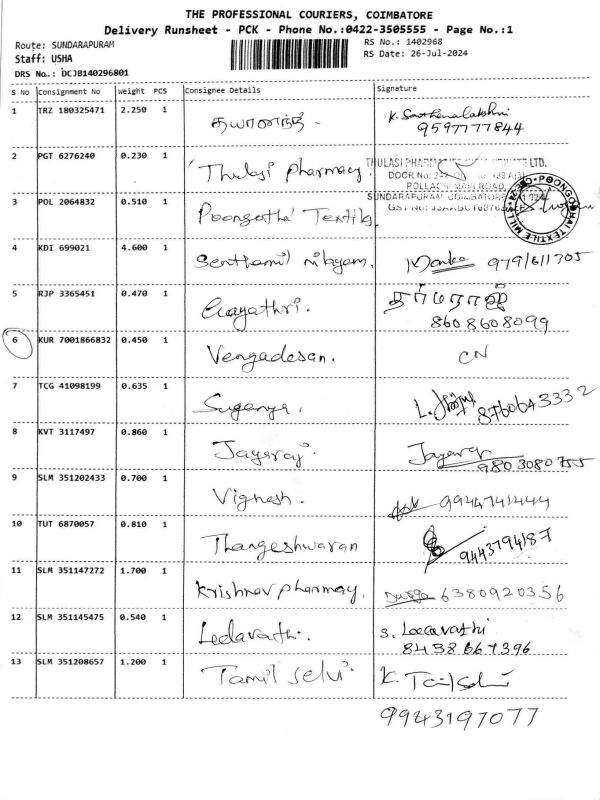 THE PROFESSIONAL COURIERS, COIMBATORE
Delivery Runsheet - PCK - Phone No.:0422-3505555 - Page No.:1
Route: SUNDARAPURAM
RS No.: 1402968
Staff: USHA
RS Date: 26-Jul-2024
DRS No.: DCJB140296801
S No Consignment No Weight PCS Consignee Details Signature
1 TRZ 180325471 2.250 1 தயாளநந்தி. K. Santhanalakshmi
9597777844
2 PGT 6276240 0.230 1 Thulasi pharmacy. THULASI PHARMA LTD.
DOOR No:
POLLACHI MAIN ROAD,
3 POL 2064832 0.510 1 Poongothai Textiles SUNDARAPURAM COIMBATORE
GST No:
POONGOTHAI TEXTILE MILLS
4 KDI 699021 4.600 1 Senthamil nilayam. 979/611705
5 RJP 3365451 0.470 1 Gayathri. தர்மராஜ்
8608608099
6 KUR 7001866832 0.450 1 Vengadesan. CN
7 TCG 41098199 0.635 1 Suganya. L. 8760643332
8 KVT 3117497 0.860 1 Jayaraj. Jayaraj
9803080755
9 SLM 351202433 0.700 1 Vignesh. 9944741444
10 TUT 6870057 0.810 1 Thangeshwaran 9443794187
11 SLM 351147272 1.700 1 Krishnav pharmay. Durga 6380920356
12 SLM 351145475 0.540 1 Leelavathi. S. Leelavathi
8438667396
13 SLM 351208657 1.200 1 Tamil selvi. K. Tamilselvi
9943197077